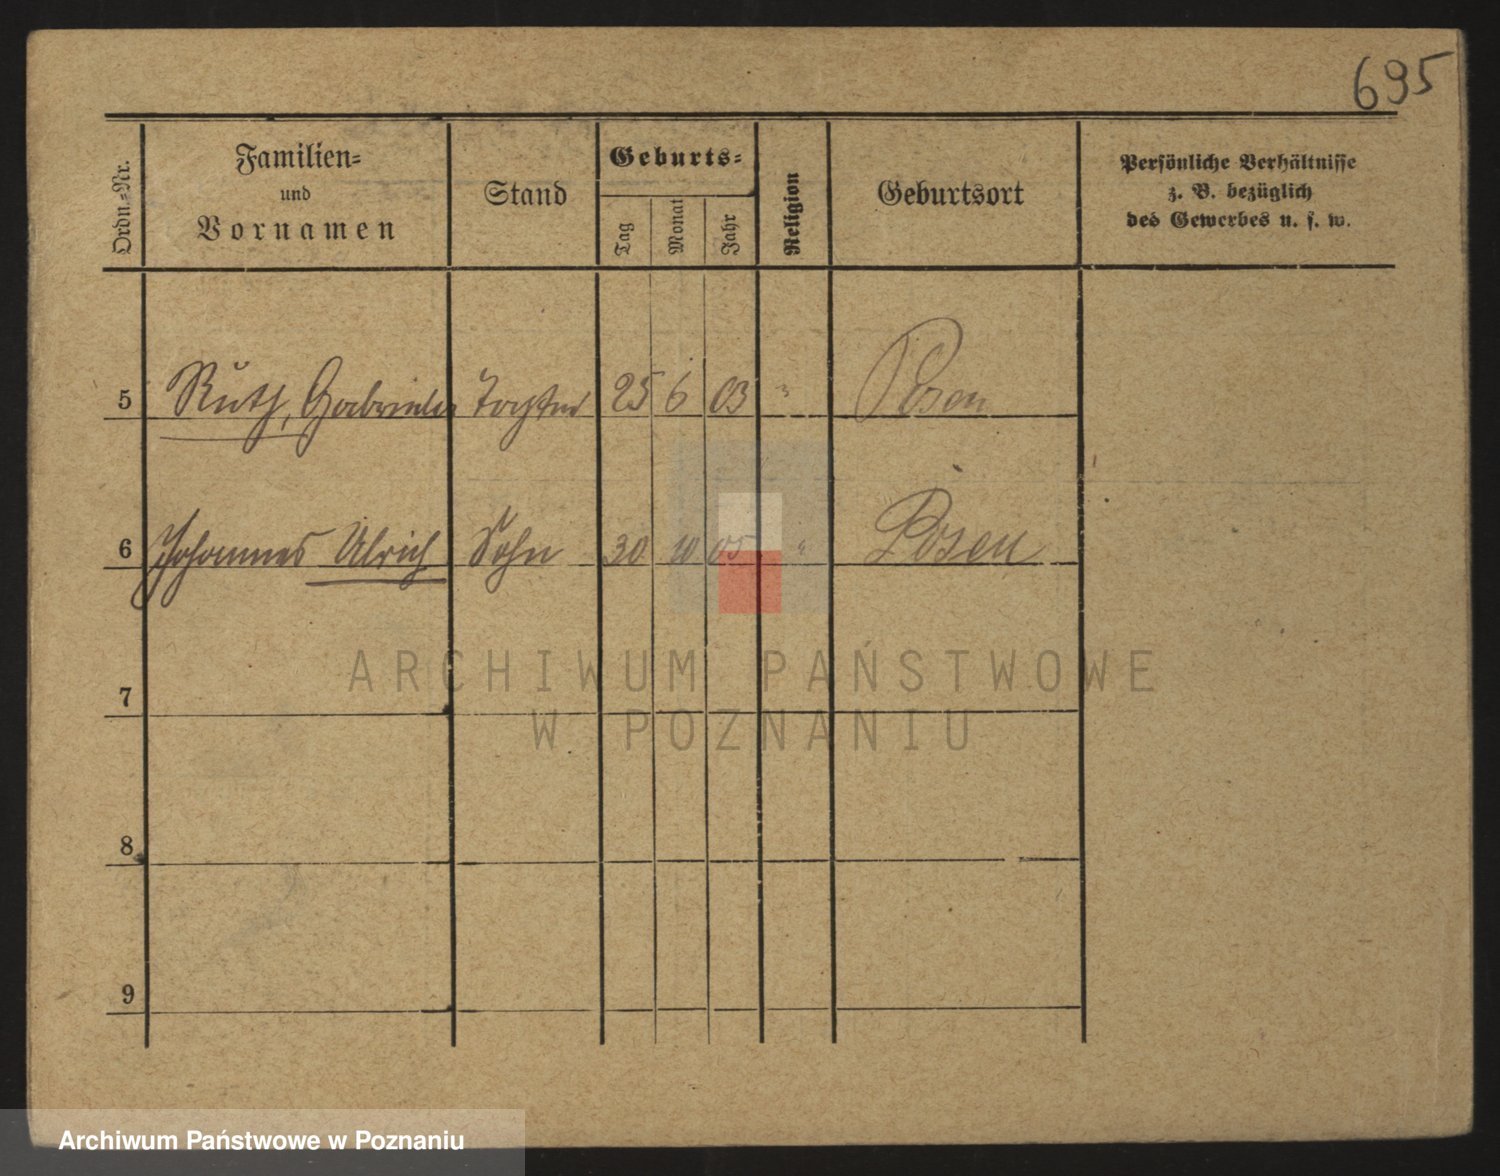 695
Ordn.-Nr.
Familien-
und
Vornamen
Stand
Geburts-
Tag
Monat
Jahr
Religion
Geburtsort
Persönliche Verhältnisse
z. B. bezüglich
des Gewerbes u. s. w.
5 Ruth, Gabriele Tochter 25 6 03 Posen
6 Johannes Ulrich Sohn 30 10 05 " Posen
7
8
9
ARCHIWUM PAŃSTWOWE
W POZNANIU
Archiwum Państwowe w Poznaniu